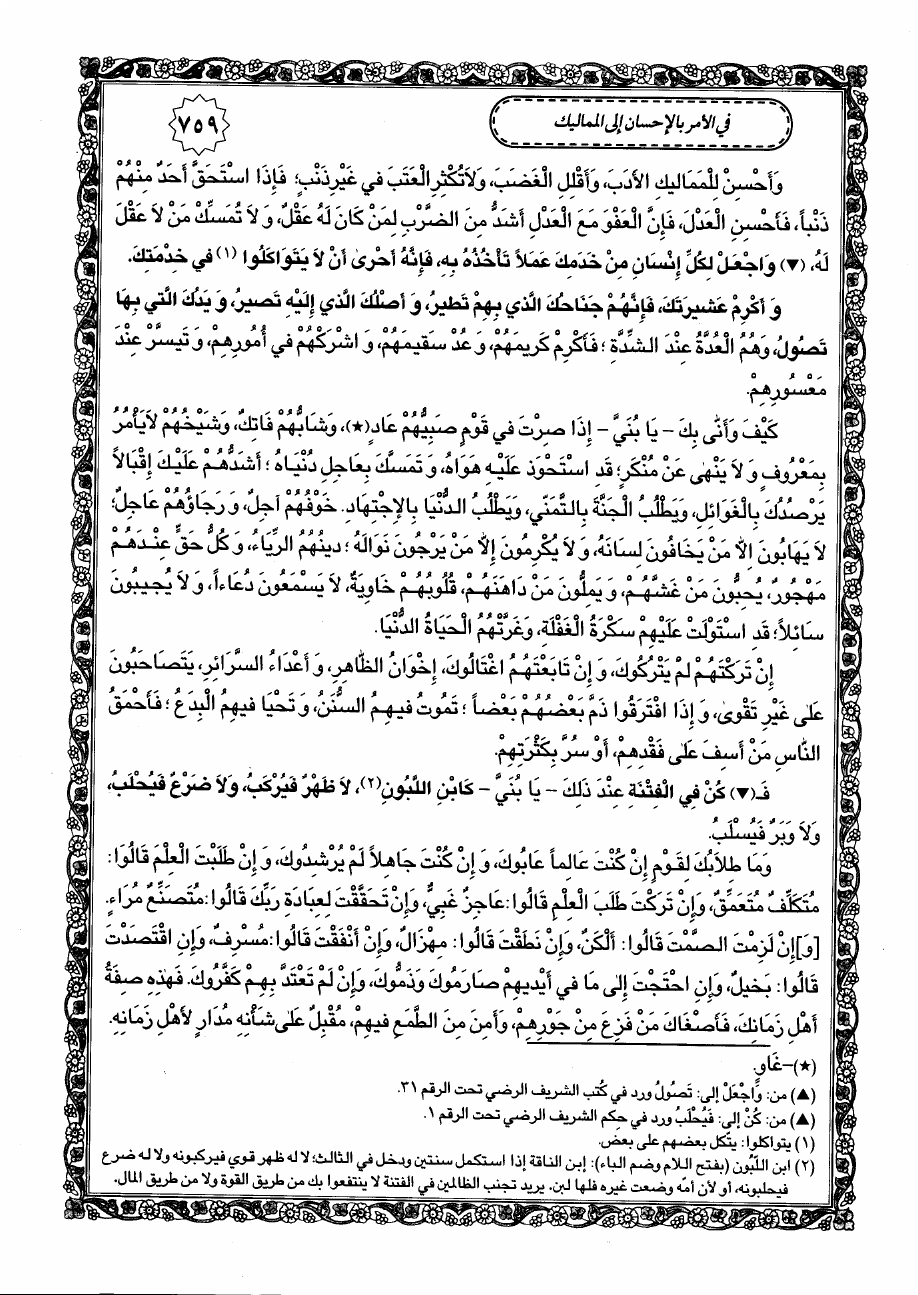 في الأمر بالإحسان إلى المماليك
٧٥٩
وَأَحْسِنْ لِلْمَمَاليكِ الأَدَبَ، وَأَقْلِلِ الْغَضَبَ، وَلاَ تُكْثِرِ الْعَتَبَ في غَيْرِ ذَنْبٍ؛ فَإِذَا اسْتَحَقَّ أَحَدٌ مِنْهُمْ
ذَنْباً، فَأَحْسِنِ الْعَدْلَ، فَإِنَّ الْعَفْوَ مَعَ الْعَدْلِ أَشَدُّ مِنَ الضَّرْبِ لِمَنْ كَانَ لَهُ عَقْلٌ، وَ لاَ تُمَسِّكْ مَنْ لاَ عَقْلَ
لَهُ، (▼) وَ اجْعَلْ لِكُلِّ إِنْسَانٍ مِنْ خَدَمِكَ عَمَلاً تَأْخُذُهُ بِهِ، فَإِنَّهُ أَحْرىٰ أَنْ لاَ يَتَوَاكَلُوا (١) في خِدْمَتِكَ.
وَ أَكْرِمْ عَشيرَتَكَ، فَإِنَّهُمْ جَنَاحُكَ الَّذي بِهِمْ تَطيرُ، وَ أَصْلُكَ الَّذي إِلَيْهِ تَصيرُ، وَ يَدُكَ الَّتي بِهَا
تَصُولُ، وَهُمُ الْعُدَّةُ عِنْدَ الشِّدَّةِ؛ فَأَكْرِمْ كَريمَهُمْ، وَ عُدْ سَقيمَهُمْ، وَ اشْرَكْهُمْ في أُمُورِهِمْ، وَ تَيَسَّرْ عِنْدَ
مَعْسُورِهِمْ.
كَيْفَ وَأَنّىٰ بِكَ - يَا بُنَيَّ - إِذَا صِرْتَ في قَوْمٍ صَبِيُّهُمْ عَادٍ (★)، وَشَابُّهُمْ فَاتِكٌ، وَشَيْخُهُمْ لاَ يَأْمُرُ
بِمَعْرُوفٍ وَ لاَ يَنْهىٰ عَنْ مُنْكَرٍ؛ قَدِ اسْتَحْوَذَ عَلَيْهِ هَوَاهُ، وَ تَمَسَّكَ بِعَاجِلِ دُنْيَاهُ؛ أَشَدُّهُمْ عَلَيْكَ إِقْبَالاً
يَرْصُدُكَ بِالْغَوَائِلِ، وَيَطْلُبُ الْجَنَّةَ بِالتَّمَنّي، وَيَطْلُبُ الدُّنْيَا بِالإِجْتِهَادِ. خَوْفُهُمْ آجِلٌ، وَ رَجَاؤُهُمْ عَاجِلٌ؛
لاَ يَهَابُونَ إِلاَّ مَنْ يَخَافُونَ لِسَانَهُ، وَ لاَ يُكْرِمُونَ إِلاَّ مَنْ يَرْجُونَ نَوَالَهُ؛ دينُهُمُ الرِّيَاءُ، وَ كُلُّ حَقٍّ عِنْدَهُمْ
مَهْجُورٌ، يُحِبُّونَ مَنْ غَشَّهُمْ، وَ يَمَلُّونَ مَنْ دَاهَنَهُمْ، قُلُوبُهُمْ خَاوِيَةٌ، لاَ يَسْمَعُونَ دُعَاءاً، وَ لاَ يُجيبُونَ
سَائِلاً؛ قَدِ اسْتَوْلَتْ عَلَيْهِمْ سَكْرَةُ الْغَفْلَةِ، وَغَرَّتْهُمُ الْحَيَاةُ الدُّنْيَا.
إِنْ تَرَكْتَهُمْ لَمْ يَتْرُكُوكَ، وَ إِنْ تَابَعْتَهُمُ اغْتَالُوكَ، إِخْوَانُ الظَّاهِرِ، وَ أَعْدَاءُ السَّرَائِرِ، يَتَصَاحَبُونَ
عَلىٰ غَيْرِ تَقْوىٰ، وَ إِذَا افْتَرَقُوا ذَمَّ بَعْضُهُمْ بَعْضاً؛ تَمُوتُ فيهِمُ السُّنَنُ، وَ تَحْيَا فيهِمُ الْبِدَعُ؛ فَأَحْمَقُ
النَّاسِ مَنْ أَسِفَ عَلىٰ فَقْدِهِمْ، أَوْ سُرَّ بِكَثْرَتِهِمْ.
فَـ(▼) كُنْ فِي الْفِتْنَةِ عِنْدَ ذَلِكَ - يَا بُنَيَّ - كَابْنِ اللَّبُونِ (٢)، لاَ ظَهْرٌ فَيُرْكَبُ، وَلاَ ضَرْعٌ فَيُحْلَبُ،
وَلاَ وَبَرٌ فَيُسْلَبُ.
وَمَا طِلاَبُكَ لِقَوْمٍ إِنْ كُنْتَ عَالِماً عَابُوكَ، وَ إِنْ كُنْتَ جَاهِلاً لَمْ يُرْشِدُوكَ، وَ إِنْ طَلَبْتَ الْعِلْمَ قَالُوا:
مُتَكَلِّفٌ مُتَعَمِّقٌ، وَإِنْ تَرَكْتَ طَلَبَ الْعِلْمِ قَالُوا: عَاجِزٌ غَبِيٌّ، وَإِنْ تَحَقَّقْتَ لِعِبَادَةِ رَبِّكَ قَالُوا: مُتَصَنِّعٌ مُرَاءٍ.
[وَ]إِنْ لَزِمْتَ الصَّمْتَ قَالُوا: أَلْكَنٌ، وَإِنْ نَطَقْتَ قَالُوا: مِهْزَالٌ، وَإِنْ أَنْفَقْتَ قَالُوا: مُسْرِفٌ، وَإِنِ اقْتَصَدْتَ
قَالُوا: بَخيلٌ، وَإِنِ احْتَجْتَ إِلىٰ مَا في أَيْديهِمْ صَارَمُوكَ وَذَمُّوكَ، وَإِنْ لَمْ تَعْتَدَّ بِهِمْ كَفَّرُوكَ. فَهٰذِهِ صِفَةُ
أَهْلِ زَمَانِكَ، فَأَصْغَاكَ مَنْ فَزِعَ مِنْ جَوْرِهِمْ، وَأَمِنَ مِنَ الطَّمَعِ فيهِمْ، مُقْبِلٌ عَلىٰ شَأْنِهِ مُدَارٍ لأَهْلِ زَمَانِهِ.
(★)-غَاوٍ.
(▲) من: وَاجْعَلْ إلى: تَصُولُ ورد في كُتب الشريف الرضي تحت الرقم ٣١.
(▲) من: كُنْ إلى: فَيُحْلَبُ ورد في حِكم الشريف الرضي تحت الرقم ١.
(١) يتواكلوا: يتّكل بعضهم على بعض.
(٢) ابن اللَّبُون (بفتح اللام وضم الباء): إبن الناقة إذا استكمل سنتين ودخل في الثالث؛ لا له ظهر قوي فيركبونه ولا له ضرع
فيحلبونه، أو لأن أمّه وضعت غيره فلها لبن. يريد تجنب الظالمين في الفتنة لا ينتفعوا بك من طريق القوة ولا من طريق المال.